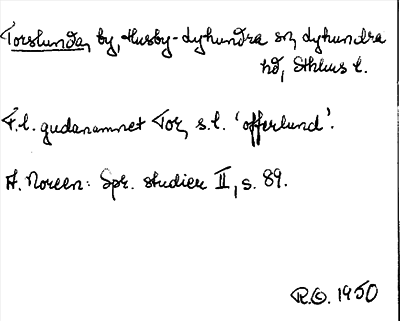 Torslunda, by, Husby-Lyhundra sn, Lyhundra
hd, Sthlms l.
F.l. gudanamnet Tor, s.l. 'offerlund'.
A. Noreen: Spr. studier II, s. 89.
R.O. 1950